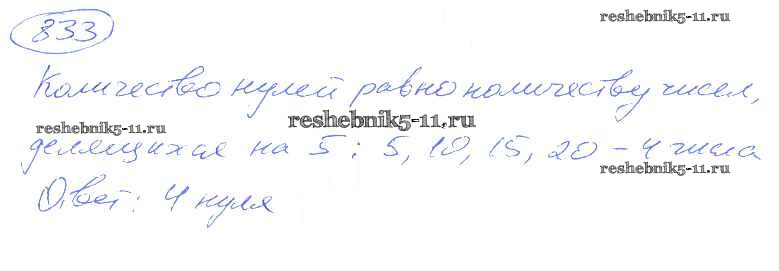 833
reshebnik5-11.ru
Количество нулей равно количеству чисел,
reshebnik5-11.ru
reshebnik5-11.ru
делящихся на 5: 5, 10, 15, 20 – 4 числа
reshebnik5-11.ru
Ответ: 4 нуля